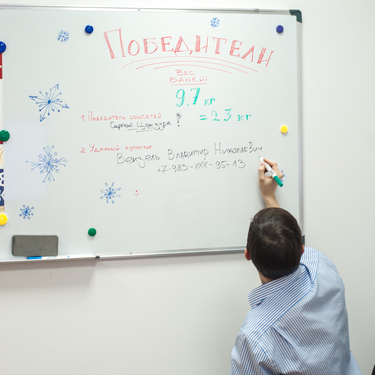 ПОБЕДИТЕЛИ
ВЕС
БАНКИ:
9.7 кг
= 2.3 кг
1. Победитель соцсетей
Сергей !
2. Удачный купальс
Вензель Владимир Николаевич
+7-983-XXX-95-13
3